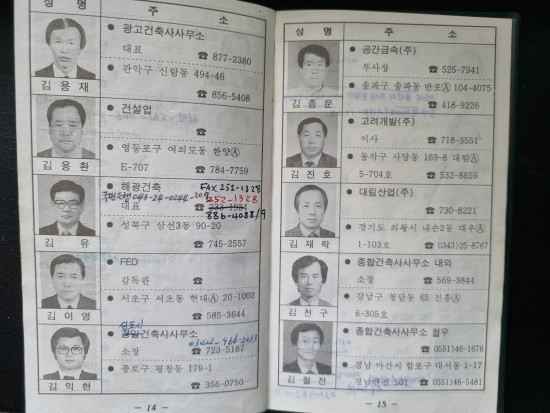 성 명 주 소
광고건축사사무소
대표 ☎ 877-2380
관악구 신림동 494-46
☎ 856-5408
김 용 재
건설업 ☎
영등포구 여의도동 한양Ⓐ
E-707 ☎ 784-7759
김 용 환
해광건축 FAX 252-1328
043-24-0244-209 252-1328
대표 ☎ 233-1931
886-4088/9
성북구 삼선3동 90-20
☎ 745-2557
김 유
FED
감독관 ☎
서초구 서초동 현대Ⓐ 20-1002
☎ 585-3644
김 이 영
건축사사무소
소장 ☎ 723-5187
종로구 평창동 179-1
☎ 356-0750
김 익 현
- 14 -
성 명 주 소
공간금속(주)
부사장 ☎ 525-7941
송파구 송파동 반포Ⓐ 104-4075
☎ 418-9226
김 종 문
고려개발(주)
이사 ☎ 718-3551
동작구 사당동 169-8 대림Ⓐ
5-704호 ☎ 532-8659
김 진 호
대림산업(주)
☎ 730-8221
경기도 의왕시 내손2동 대우Ⓐ
1-103호 ☎ (0343)25-8767
김 재 락
종합건축사사무소 내외
소장 ☎ 569-3844
강남구 청담동 65 진흥Ⓐ
6-305호
김 천 구
종합건축사사무소 철우
☎ (0551)46-1676
경남 마산시 합포구 대서동 1-17
501 ☎ (0551)46-5481
김 철 진
- 15 -